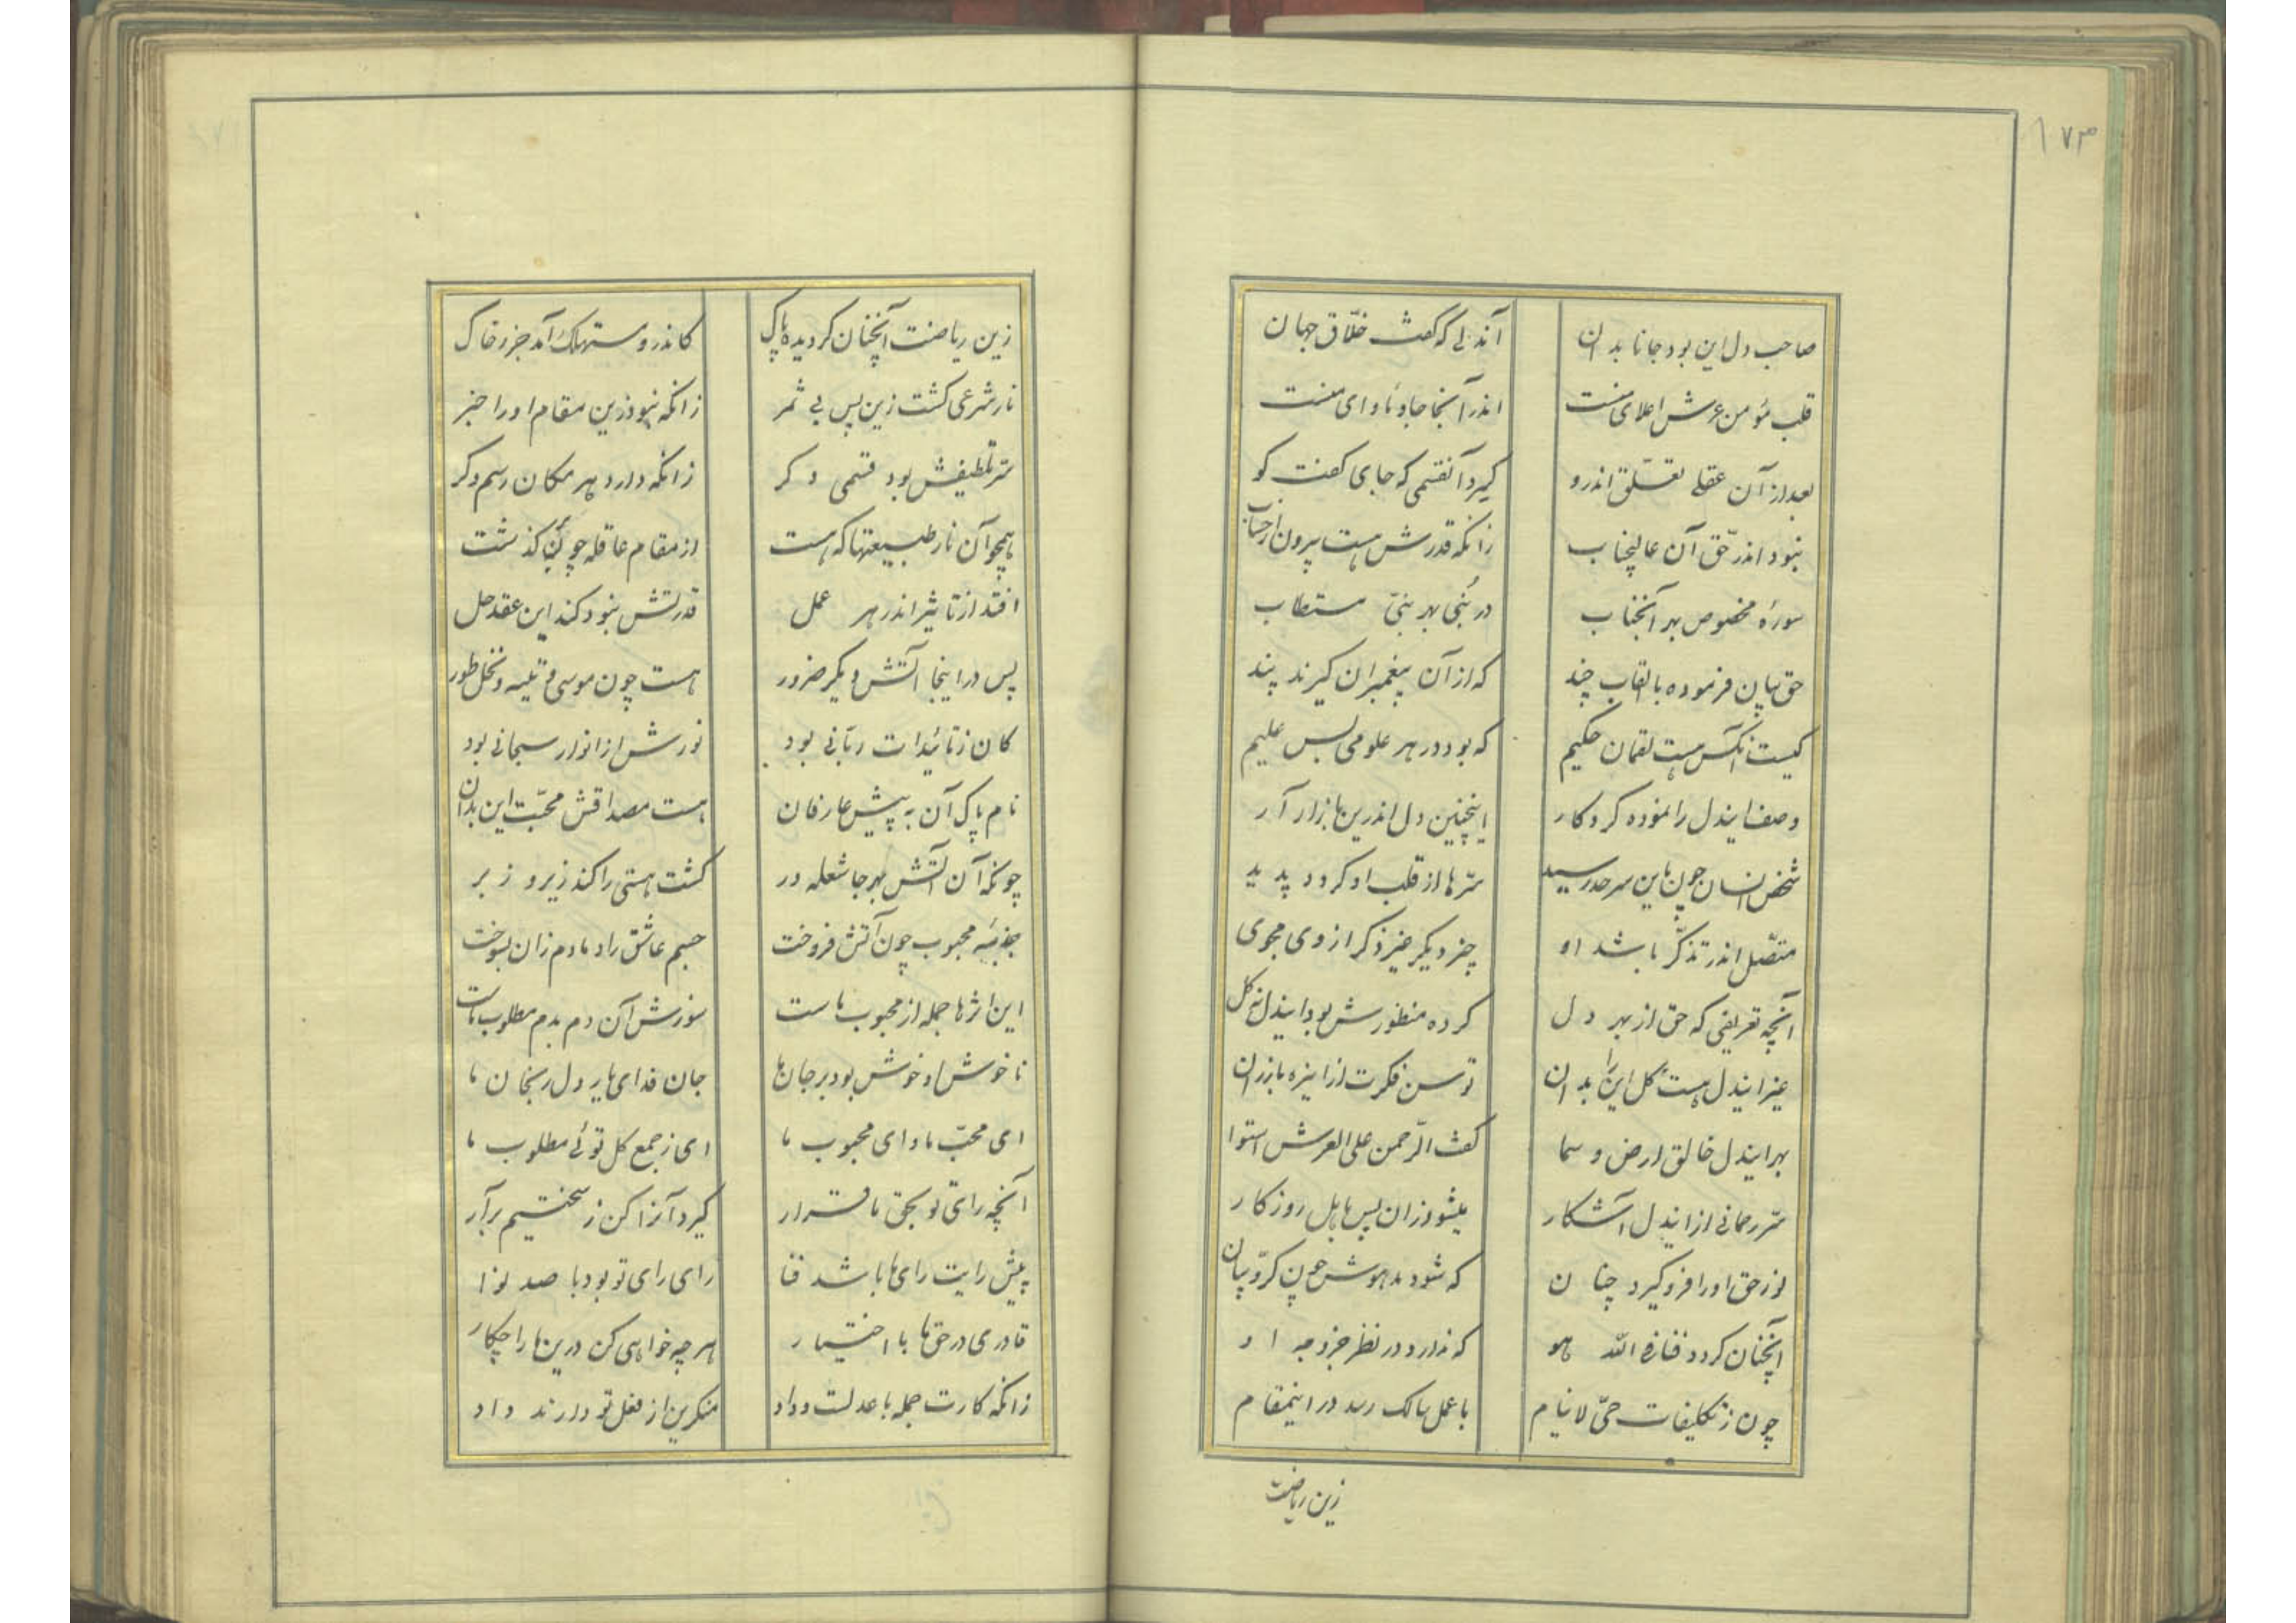 ۱۷۳
صاحب دل این بود جانا بدان آندلی که گفت خلّاق جهان
قلب مؤمن عرش اعلای منست اندر آنجا جا و ماوای منست
بعد از آن عقلی تعلّق اندرو کیرد آنقسمی که جای گفت کو
نبود اندر حق آن عالیجناب زانکه قدرش هست بیرون از حساب
سورهٔ مخصوص بهر آنجناب در نُبی بهر نبیّ مستطاب
حق بیان فرموده با القاب چند که از آن پیغمبران کیرند پند
کیست آنکس هست لقمان حکیم که بود در هر علومی بس علیم
وصف ایندل را نموده کردکار اینچنین دل اندرین بازار آر
شخص انسان چون باین سرحد رسید سرّها از قلب او کردد پدید
متصّل اندر تذکّر باشد او چیز دیکر غیر ذکر از وی مجوی
آنچه تعریفی که حق از بهر دل کرده منظورش بود ایندل نه کل
غیر ایندل هست کل این را بدان توسن فکرت ازاینره بازران
بهر ایندل خالق ارض و سما کفت الرّحمن علی العرش استوا
سرّ رحمانی ازایندل آشکار میشود زان پس بابل روزکار
نور حق او را فرو کیرد چنان که شود مدهوش چون کرّوبیان
آنچنان کردد فنا فی الله هو که ندارد در نظر جز وجه او
چون ز تکلیفات حیّ لاینام با عمل سالک رسد در اینمقام
زین ریاضت
زین ریاضت آنچنان کردیده پاک کاندرو مستهلک آمد جزو خاک
نار شرعی کشت زین پس بی ثمر زانکه نبود زین مقام او را خبر
سرّ تلطیفش بود قسمی دکر زانکه دارد هر مکان رسم دکر
همچو آن نار طبیعتها که هست از مقام عاقله چون کذشت
افتد از تاثیر اندر هر عمل قدرتش نبود کند این عقد حل
پس در اینجا آتش دیکر ضرور هست چون موسی و تیه و نخل طور
کان ز تائیدات ربّانی بود نورش از انوار سبحانی بود
نام پاک آن به پیش عارفان هست مصداقش محبّت این بدان
چونکه آن آتش بهر جا شعله ور کشت هستی را کند زیر و زبر
جذبهٔ محبوب چون آتش فروخت جسم عاشق را دمادم زان بسوخت
این اثرها جمله از محبوب ماست سوزش آن دم بدم مطلوب ماست
ناخوش او خوش بود بر جان ما جان فدای یار دل رنجان ما
ای محبّ ما و ای محبوب ما ای ز جمع کل توئی مطلوب ما
آنچه رای تو بحق ما قرار کیرد آنرا کن ز سختیم برآر
پیش رایت رای ما باشد فنا رای رای تو بود با صد نوا
قادری در حق ما با اختیار هر چه خواهی کن درین ما را چکار
زانکه کارت جمله با عدلست و داد منکرین از فعل تو دارند داد